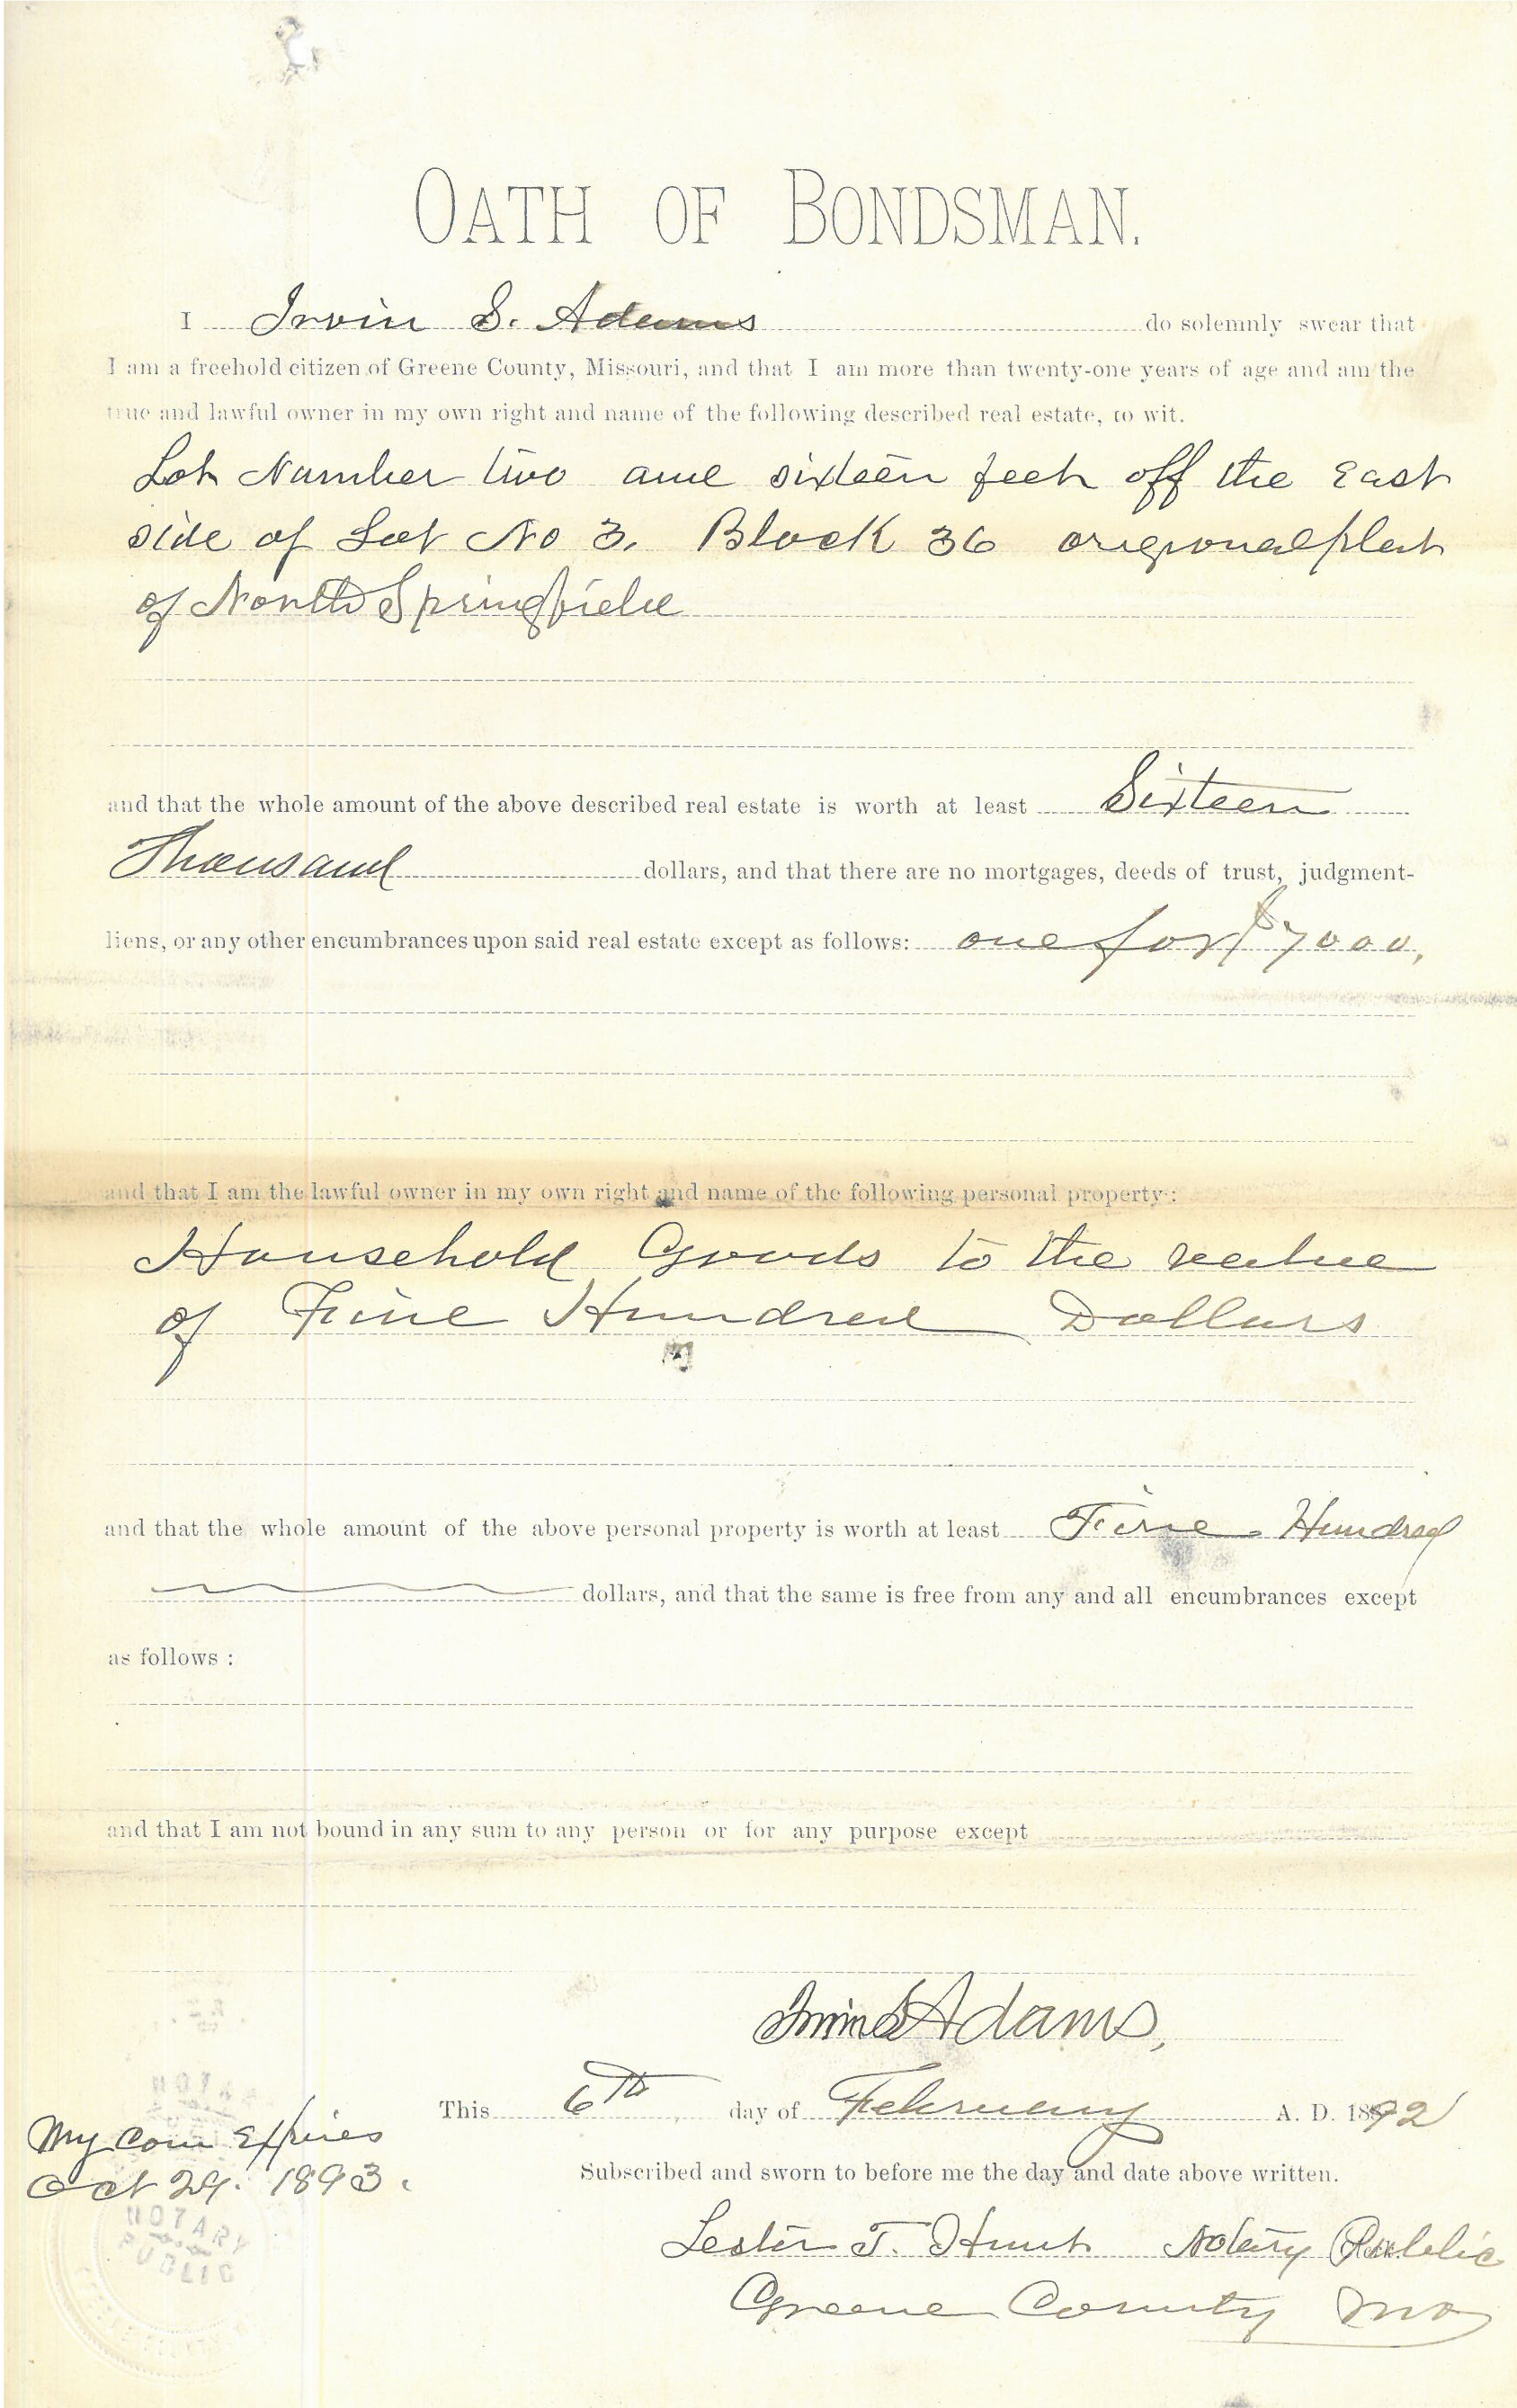 OATH OF BONDSMAN.
I Irvin S. Adams do solemnly swear that
I am a freehold citizen of Greene County, Missouri, and that I am more than twenty-one years of age and am the
true and lawful owner in my own right and name of the following described real estate, to wit.
Lot Number two and sixteen feet off the East
side of Lot No 3. Block 36 origional plat
of North Springfield
and that the whole amount of the above described real estate is worth at least Sixteen
Thousand dollars, and that there are no mortgages, deeds of trust, judgment-
liens, or any other encumbrances upon said real estate except as follows: one for $7000.
and that I am the lawful owner in my own right and name of the following personal property:
Household Goods to the value
of Five Hundred Dollars
and that the whole amount of the above personal property is worth at least Five Hundred
dollars, and that the same is free from any and all encumbrances except
as follows:
and that I am not bound in any sum to any person or for any purpose except
Irvin S Adams,
This 6th day of February A. D. 1892
My Com Expires
Oct 29. 1893.
Subscribed and sworn to before me the day and date above written.
Lester T. Hunt Notary Public
Greene County Mo
NOTARY
PUBLIC